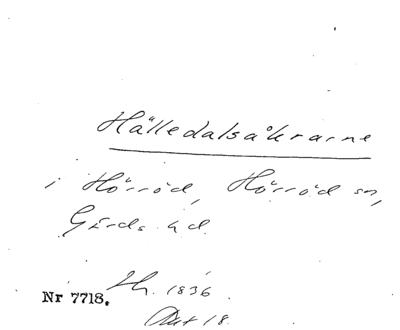 Hälledalsåkrarne
i Hörröd, Hörröd sn,
Gärds hd
1836
Nr 7718.
18.